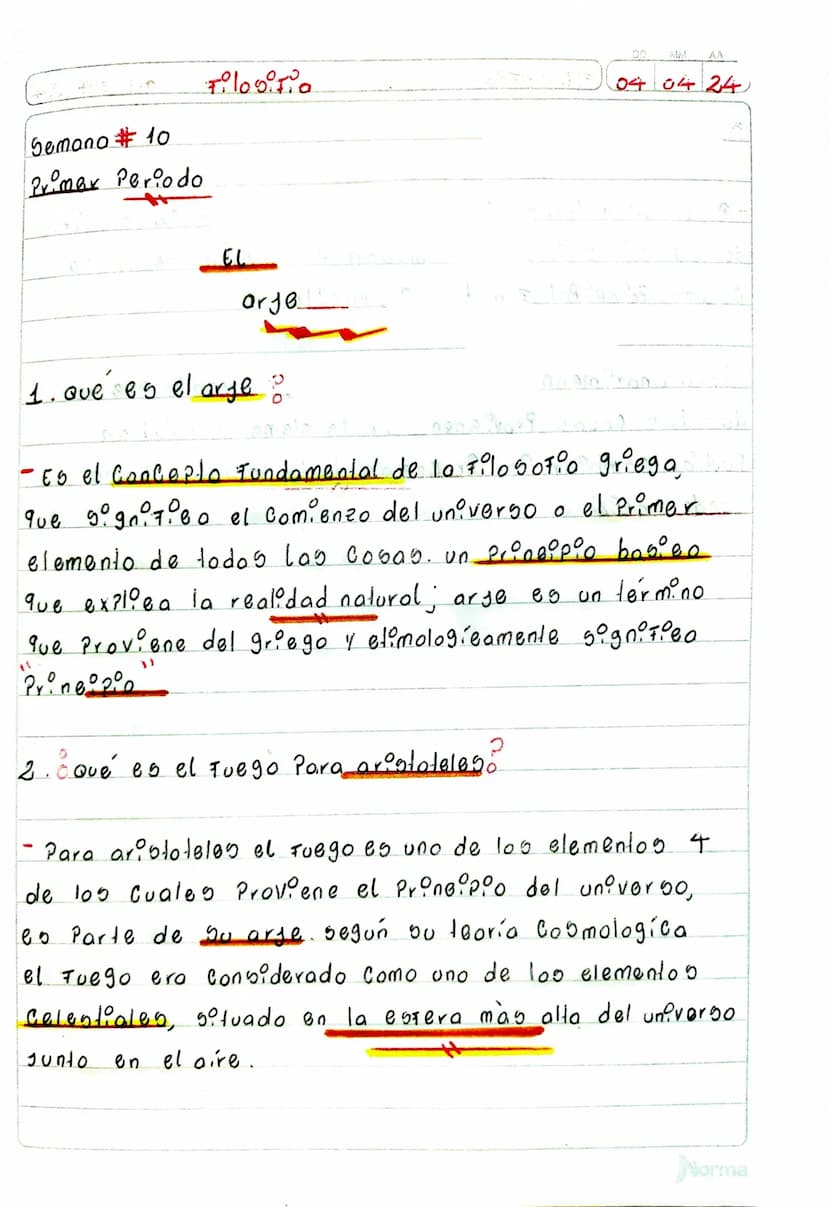 DD MM AA
Filosofia 04 04 24
Semana # 10
Primer Periodo
El
arje
1. Qué es el arje ?
- Es el Concepto Fundamental de la Filosofia griega,
que significa el Comienzo del universo o el Primer
elemento de todas las Cosas. un Principio basico
que explica la realidad natural; arje es un término
que Proviene del griego y etimologícamente significa
"Principio"
2. ¿Qué es el Fuego Para aristoteles?
- Para aristoteles el Fuego es uno de los elementos 4
de los Cuales Proviene el Principio del universo,
es Parte de Su arje. Según su teoría Cosmologíca
el Fuego era Considerado Como uno de los elementos
Celestiales, situado en la esfera màs alta del universo
Junto en el aire.
Norma